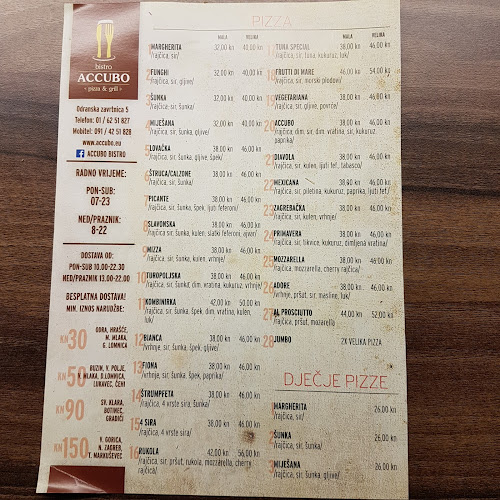 bistro
ACCUBO
• pizza & grill •
Odranska zavrtnica 5
Telefon: 01 / 62 51 827
Mobitel: 091 / 42 51 828
www.accubo.eu
ACCUBO BISTRO
RADNO
VRIJEME:
PON-SUB:
07-23
NED/PRAZNIK:
8-22
DOSTAVA OD:
PON-SUB 10.00-22.30
NED/PRAZNIK 13.00-22.00
BESPLATNA DOSTAVA!
MIN. IZNOS NARUDŽBE:
KN 30
ODRA, HRAŠĆE,
M. MLAKA,
G. LOMNICA
KN 50
BUZIN, V. POLJE,
MLAKA, D.LOMNICA,
LUKAVEC, ČEHI
KN 90
SV. KLARA,
BOTINEC,
GRADIĆI
KN 150
V. GORICA,
N. ZAGREB,
T. MARKUŠEVEC
PIZZA
MALA VELIKA
MARGHERITA 32,00 kn 40,00 kn
/rajčica, sir/
2 FUNGHI 32,00 kn 40,00 kn
/rajčica, sir, gljive/
3 ŠUNKA 32,00 kn 40,00 kn
/rajčica, sir, šunka/
4 MIJEŠANA 32,00 kn 40,00 kn
/rajčica, sir, šunka, gljive/
5 LOVAČKA 38,00 kn 46,00 kn
/rajčica, sir, šunka, gljive, špek/
6 ŠTRUCA/CALZONE 38,00 kn 46,00 kn
/rajčica, sir, šunka/
7 PICANTE 38,00 kn 46,00 kn
/rajčica, sir, šunka, špek, ljuti feferoni/
8 SLAVONSKA 38,00 kn 46,00 kn
/rajčica, sir, šunka, kulen, slatki feferoni, ajvar/
9 MIZZA 38,00 kn 46.00 kn
/rajčica, sir, šunka, kulen, vrhnje/
10 TUROPOLJSKA 38,00 kn 46.00 kn
/rajčica, sir, šunka, dim. vratina, kukuruz, vrhnje/
11 KOMBINIRKA 42,00 kn 50.00 kn
/rajčica, sir, šunka, špek, dim. vratina, kulen,
luk/
12 BIANCA 38,00 kn 46.00 kn
/vrhnje, sir, šunka, špek, gljive/
13 FIONA 38,00 kn 46.00 kn
/vrhnje, sir, šunka, špek, paprika/
14 ŠTRUMPFETA 38,00 kn 46.00 kn
/rajčica, 4 vrste sira, šunka/
15 4 SIRA 38,00 kn 46.00 kn
/rajčica, 4 vrste sira/
16 RUKOLA 38,00 kn 46.00 kn
/rajčica, sir, pršut, rukola, mozzarella, cherry
rajčica/
MALA VELIKA
TUNA SPECIAL 38,00 kn 46.00 kn
/rajčica, sir, tuna, kukuruz, luk/
FRUTTI DI MARE 46,00 kn 54.00 kn
/rajčica, sir, morski plodovi/
VEGETARIANA 38,00 kn 46.00 kn
/rajčica, sir, gljive, povrće/
20 ACCUBO 38,00 kn 46.00 kn
/rajčica, dim. sir, dim. vratina, sir, kukuruz,
paprika/
21 DIAVOLA 38,00 kn 46.00 kn
/rajčica, sir, kulen, ljuti fef., tabasco/
22 MEXICANA 38,00 kn 46.00 kn
/rajčica, sir, piletina, kukuruz, paprika, ljuti fef./
23 ZAGREBAČKA 38,00 kn 46.00 kn
/rajčica, sir, šunka, kulen, vrhnje/
24 PRIMAVERA 38,00 kn 46.00 kn
/rajčica, sir, tikvice, kukuruz, dimljena vratina/
25 MOZZARELLA 38,00 kn 46.00 kn
/rajčica, mozzarella, cherry rajčica/
26 ADORE 38,00 kn 46.00 kn
/vrhnje, pršut, sir, masline, luk/
27 AL PROSCIUTTO 44,00 kn 52,00 kn
/rajčica, pršut, mozarella
28 JUMBO 2X VELIKA PIZZA
DJEČJE PIZZE
1 MARGHERITA 26,00 kn
/rajčica, sir/
2 ŠUNKA 26,00 kn
/rajčica, sir, šunka/
3 MIJEŠANA 26,00 kn
/rajčica, sir, šunka, gljive/